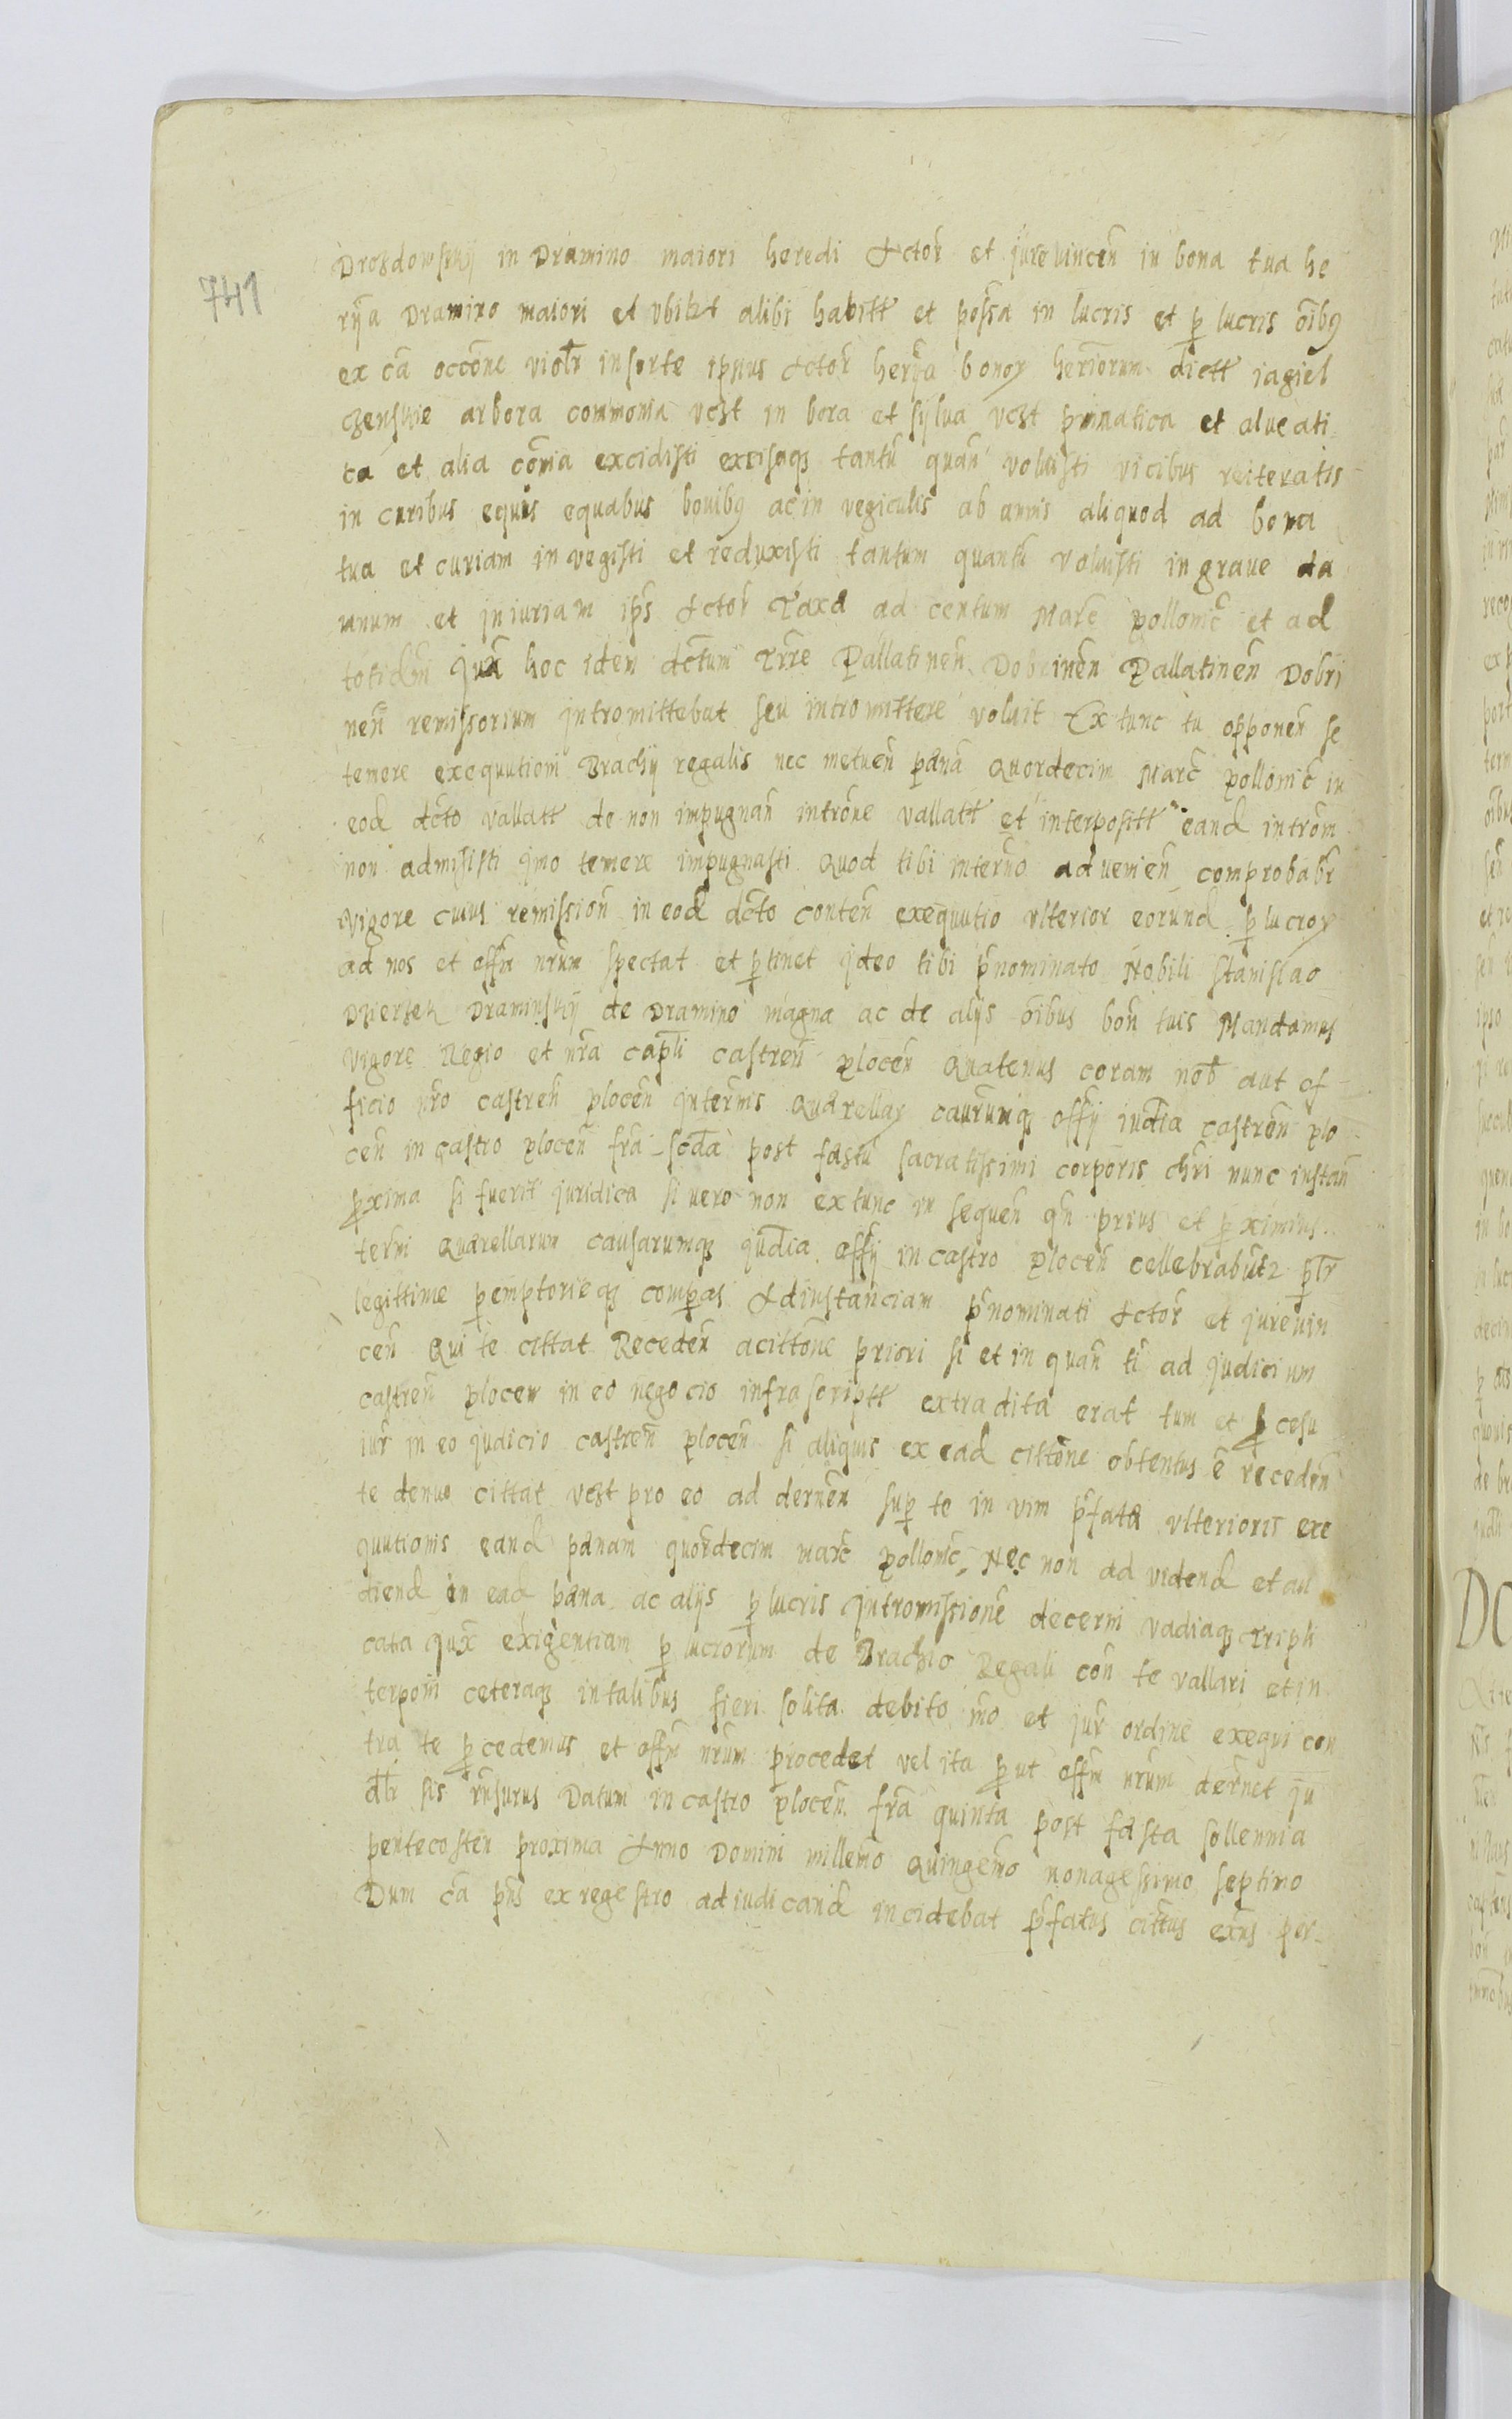 741
Drozdowskij in Dramino maiori heredi Actor̃ et jurevincen̄ in bona tua he
rÿa Dramino maiori et vbilz̃t alibi habitt et possa in lucris et p lucris oībꝰ
ex cā occōne violtr in sorte ipsius Actor̃ herÿa bonoꝝ heriorum dictt iagiel
czenskie arbora commonia vcst in bora et sÿlva vcst pinnatica et alveati
ca et alia cōnia excidisti excisaqꝫ tantū quan̄ voluisti vicibus reiteratis
in curibus equis equabus bouibꝰ ac in vegiculis ab annis aliquod ad bona
tua et curiam invegisti et reduxisti tantum quantū voluisti in graue da
mnum et iniuriam ips̄ Actor̃ Taxa ad centum Marc̄ pollonic̄ et ad
totidm̄ Qua hoc idem dctum Trre Pallatinen̄ Dobrinen̄ Pallatinen̄ Dobri
nen̄ remissorium intromittebat seu intromittere voluit Extunc tu opponen̄ se
temere exequutioni Brachij regalis nec metuen̄ pænā Quordecim Marc̄ pollonic̄ in
eod dcto vallatt de non impugnan̄ introne vallatt et interpositt eand introm̄
non admisisti ymo temere impugnasti Quod tibi intermō advenien̄ comprobabr̄
Vigore cuius remission̄ in eod dcto conten̄ exequutio vlterior eorund p lucroꝝ
ad nos et offm̄ nrum spectat et ptinet ideo tibi prnominato Nobili Stanislao
Dzierzek Draminskÿ de Dramino magna ac de alijs oībus bon̄ tuis Mandamus
Vigore Regio et nrā capli castren̄ plocen̄ Quatenus coram nob̄ aut of
ficio nrō castren̄ plocen̄ intermis Quærellaꝝ caurumqꝫ offÿ iudia castren̄ plo
cen̄ in castro plocen̄ frā scda post fæstū sacratissimi corporis chri nunc instan̄
pxima si fuerit juridica si uero non extunc in sequen̄ qn̄ prius et pximius
termi Quærellarum causarumqꝫ judia offÿ in castro plocen̄ cellebrabūtr pltr
legittime pemptorieqꝫ compas Ad instanciam prnominati Actor̃ et jurevin
cen̄ Qui te cittat Receden̄ a cittōne priori si et in quan̄ ti ad judicium
castren̄ plocen̄ in eo negocio infrascriptt extradita erat tum et pcesu
iur̄ in eo judicio castren̄ plocen̄ si aliquis ex ead cittōne obtentus ē receden̄
te denuo cittat vcst pro eo ad dernen̄ sup te in vim prfatæ vlterioris exe
quutionis eand pænam quordecim marc̄ pollonic̄ Nec non ad vidend et au
diend in ead pæna ac alijs p lucris intromissionē decerni vadiaqꝫ tripli
cata qux̄ exigentiam p lucrorum de Brachio Regali con̄ te vallari et in
terponi ceteraqꝫ in talibus fieri solita debito mō et jur̄ ordine exequi con
tra te pcedemus et offm̄ nrum procedet vel ita put offm̄ nrum dernet ju
dtr sis rn̄surus Datum in castro plocen̄ frā quinta post fæsta sollennia
pentecosten proxima Anno Domini millemō Quingemō nonagessimo septimo
Dum cā pn̄s ex regestro adiudicand incidebat prfatus cittus exns per-